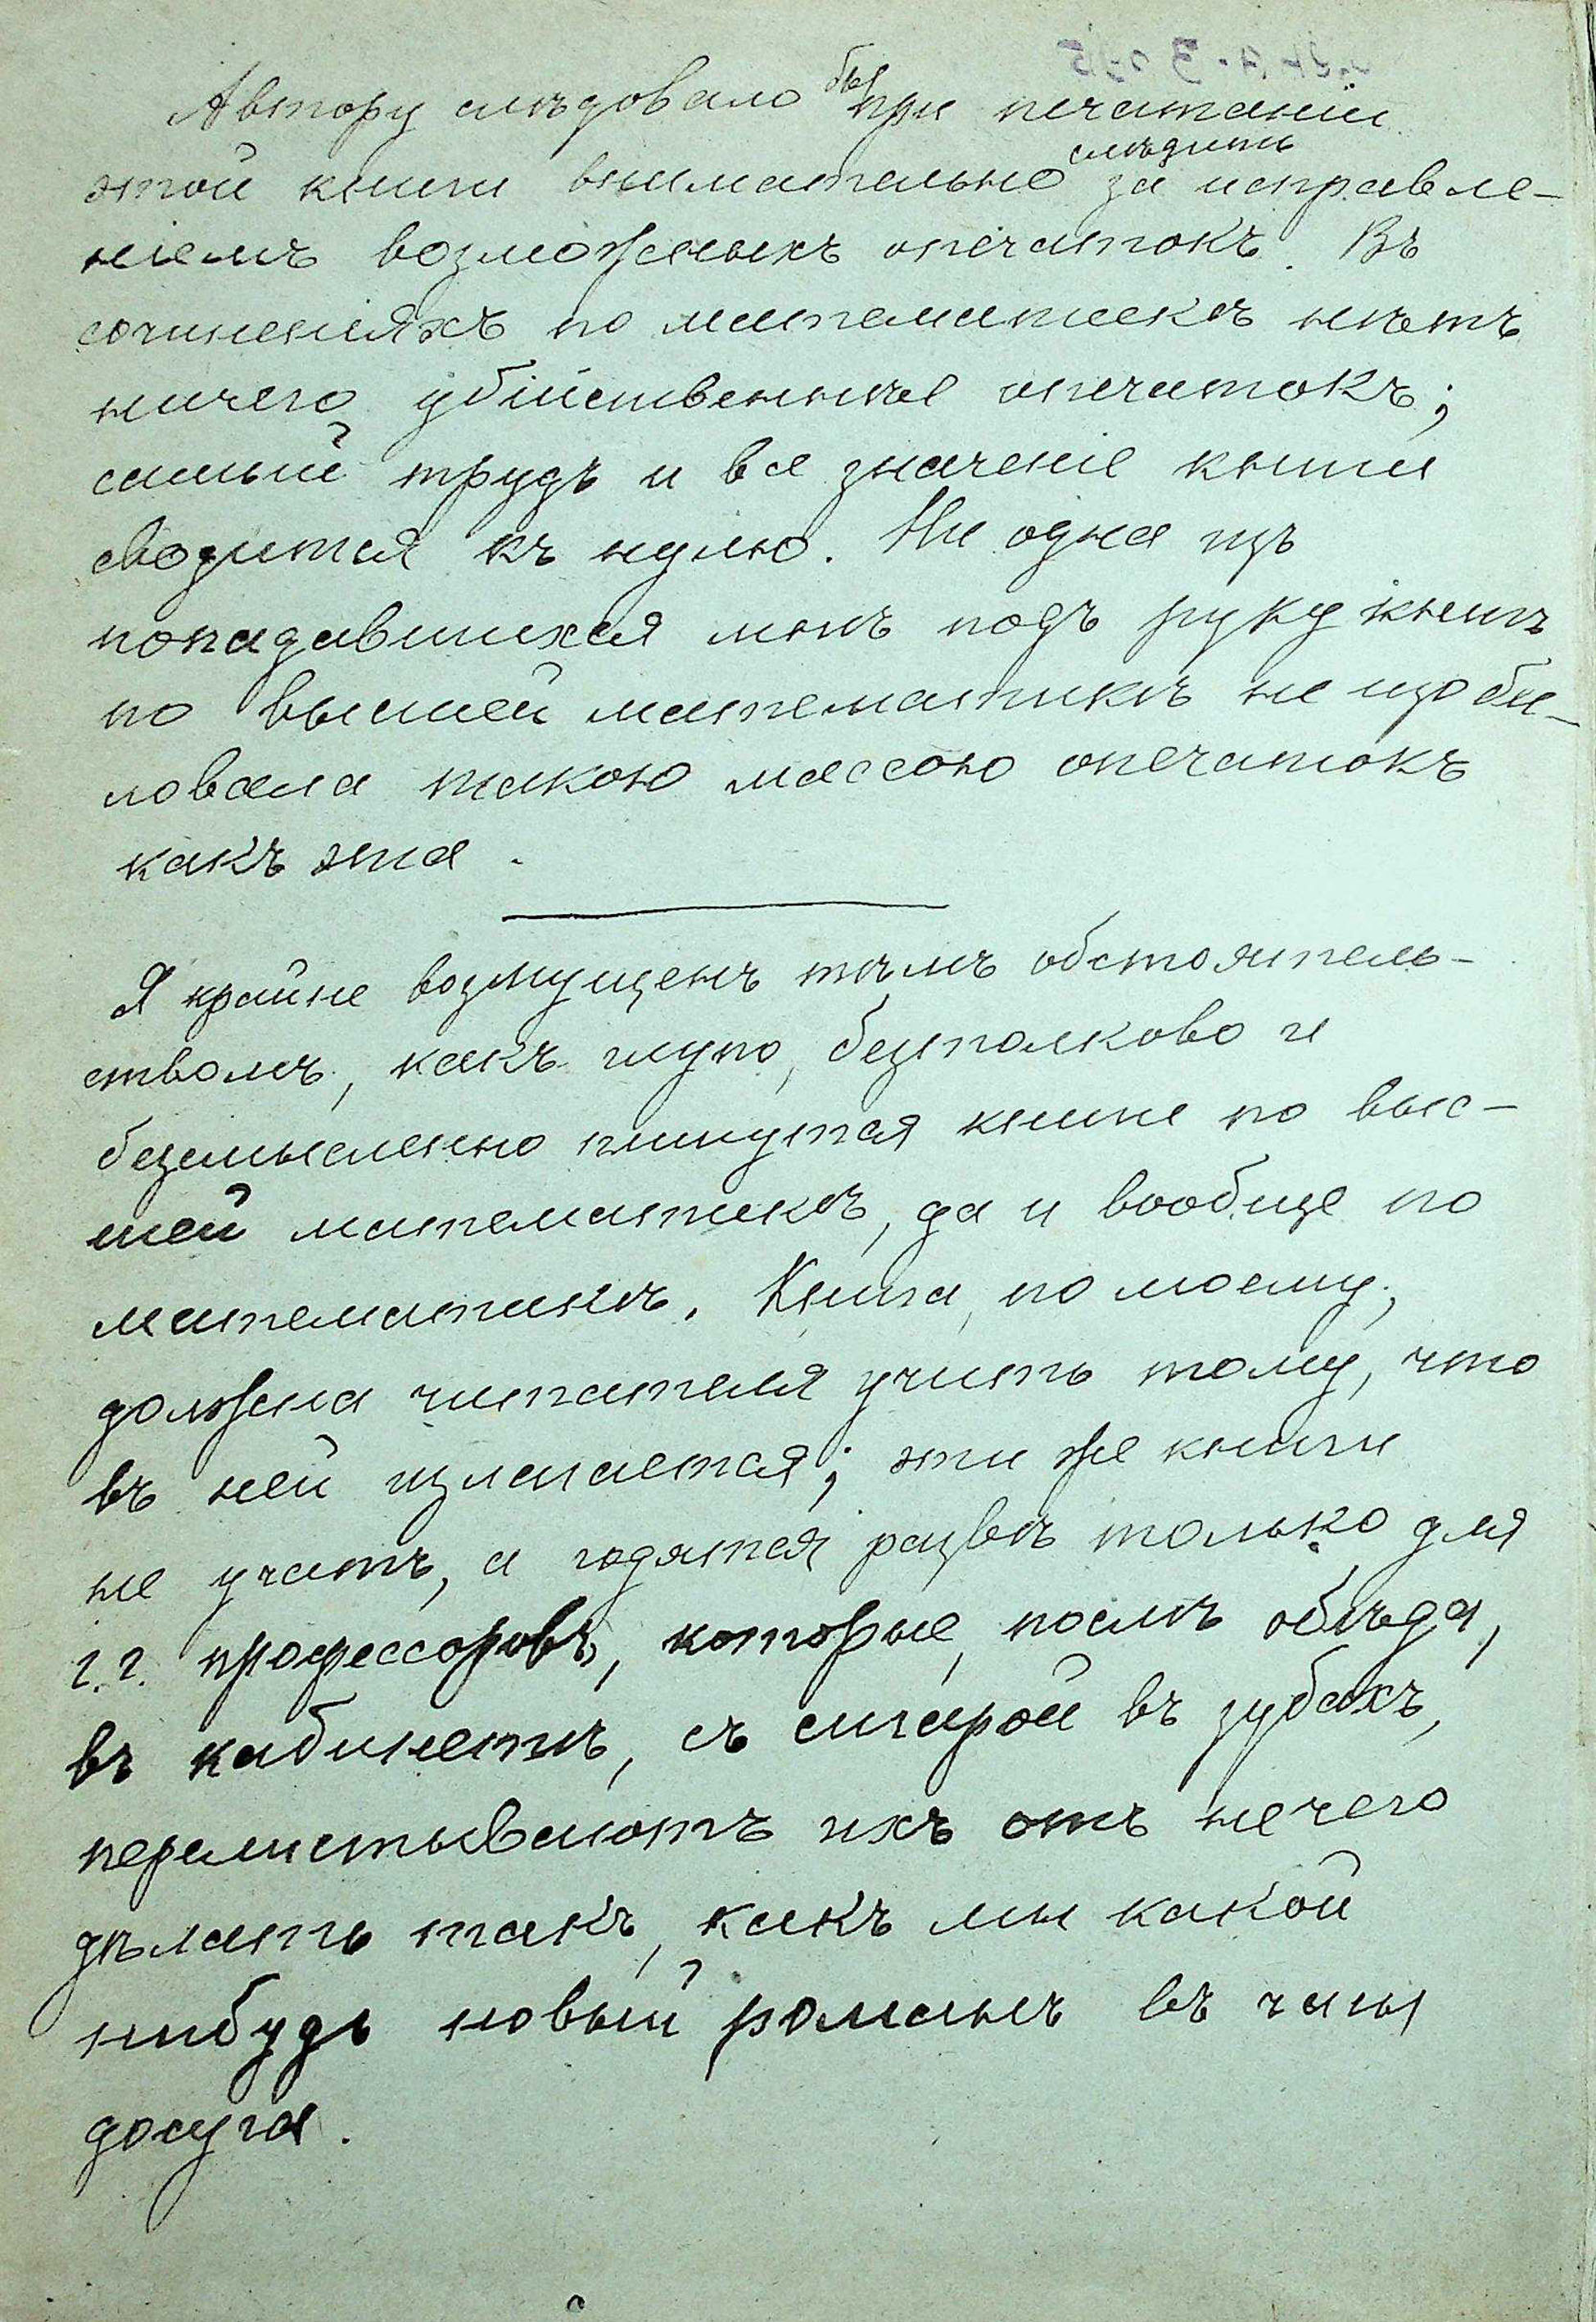 Автору слѣдовало бы при печатаніи
этой книги внимательно слѣдить за исправле-
ніемъ возможныхъ опечатокъ. Въ
сочиненіяхъ по математикѣ нѣтъ
ничего убійственнѣе опечатокъ;
самый трудъ и все значеніе книги
сводится къ нулю. Ни одна изъ
попадавшихся мнѣ подъ руку книгъ
по высшей математикѣ не изоби-
ловала такою массою опечатокъ
какъ эта.
Я крайне возмущенъ тѣмъ обстоятель-
ствомъ, какъ глупо, безтолково и
безсмысленно пишутся книги по выс-
шей математикѣ, да и вообще по
математикѣ. Книга, по моему,
должна читателя учить тому, что
въ ней излагается; эти же книги
не учатъ, а годятся развѣ только для
г.г. профессоровъ, которые, послѣ обѣда,
въ кабинетѣ, съ сигарой въ зубахъ,
перелистываютъ ихъ отъ нечего
дѣлать такъ, какъ мы какой
нибудь новый романъ въ часы
досуга.